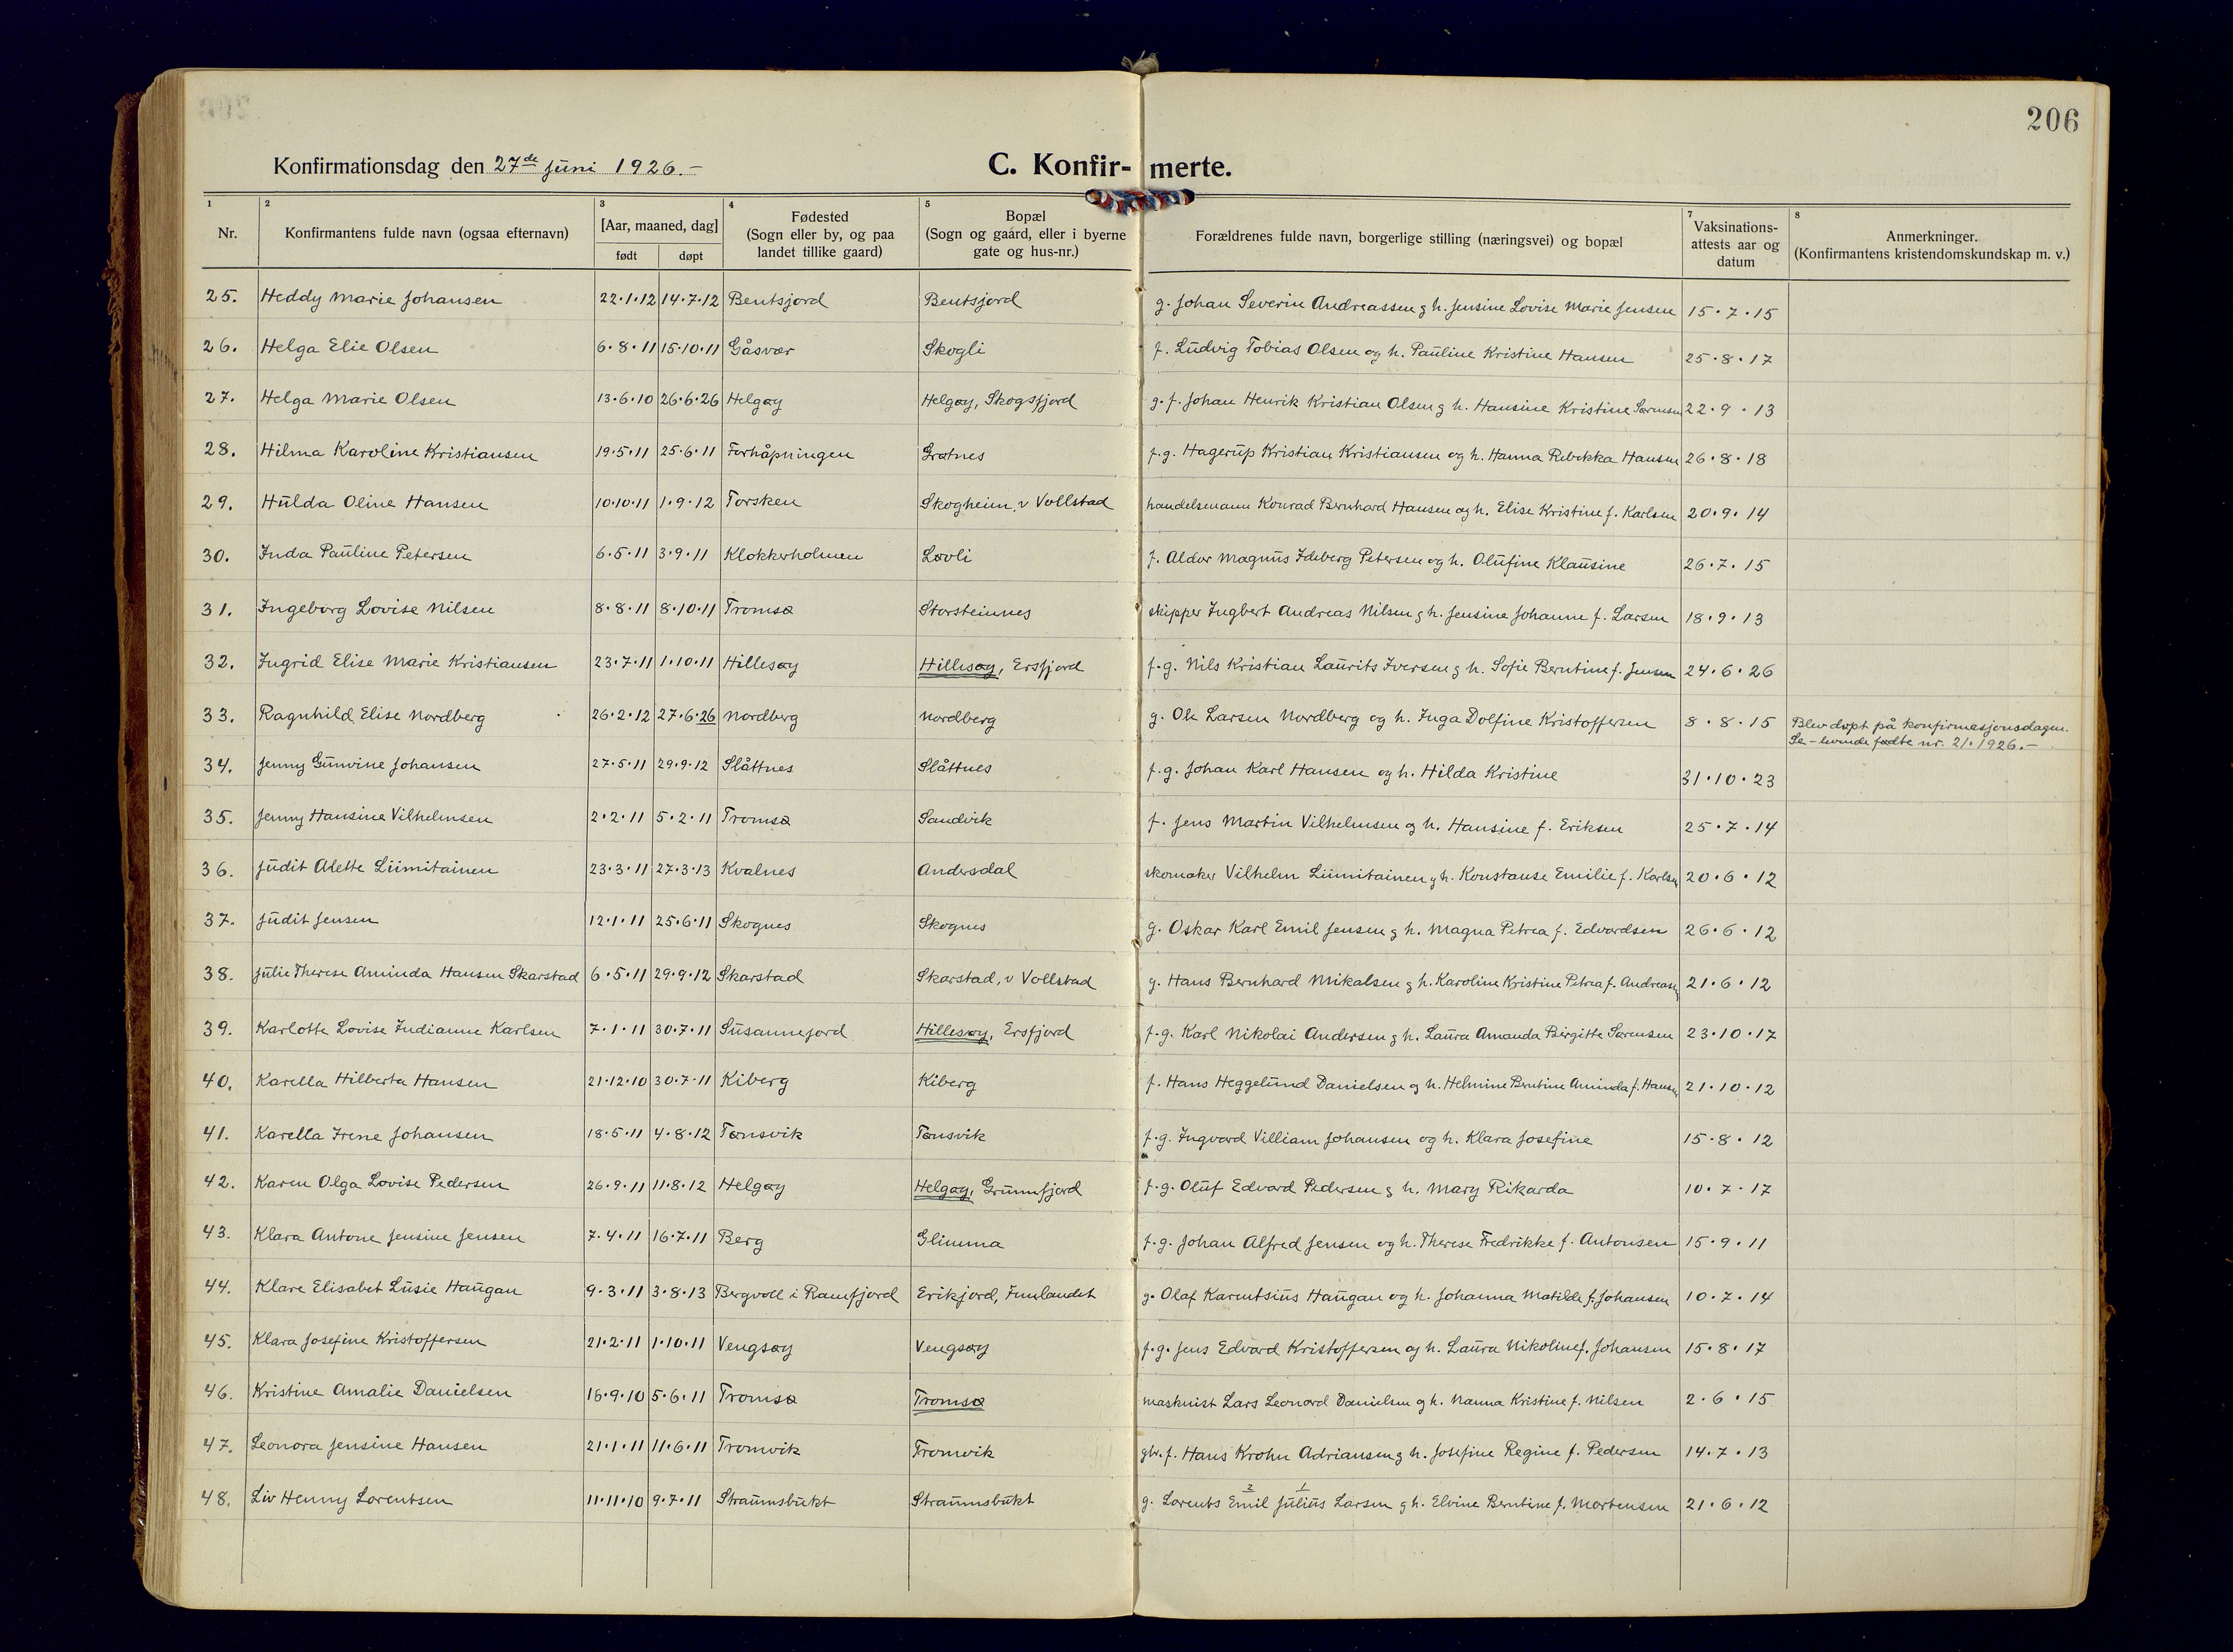 206
Konfirmationsdag den 27de juni 1926.-
C. Konfir- merte.
1 2 3 4 5 7 8
Nr. Konfirmantens fulde navn (ogsaa efternavn) [Aar, maaned, dag] født døpt Fødested (Sogn eller by, og paa landet tillike gaard) Bopæl (Sogn og gaard, eller i byerne gate og hus-nr.) Forældrenes fulde navn, borgerlige stilling (næringsvei) og bopæl Vaksinations-attests aar og datum Anmerkninger. (Konfirmantens kristendomskundskap m. v.)
25. Heddy Marie Johansen 22.1.12 14.7.12 Bentsjord Bentsjord g. Johan Severin Andreassen g h. Jensine Lovise Marie Jensen 15.7.15
26. Helga Elie Olsen 6.8.11 15.10.11 Gåsvær Skogli f. Ludvig Tobias Olsen og h. Pauline Kristine Hansen 25.8.17
27. Helga Marie Olsen 13.6.10 26.6.26 Helgøy Helgøy, Skogsfjord g.f. Johan Henrik Kristian Olsen g h. Hansine Kristine Sørensen 22.9.13
28. Hilma Karoline Kristiansen 19.5.11 25.6.11 Forhåpningen Grøtnes f.g. Hagerup Kristian Kristiansen og h. Hanna Rebekka Hansen 26.8.18
29. Hulda Oline Hansen 10.10.11 1.9.12 Torsken Skogheim, v Vollstad handelsmann Konrad Bernhard Hansen og h. Elise Kristine f. Karlsen 20.9.14
30. Inda Pauline Petersen 6.5.11 3.9.11 Klokkerholmen Løvli f. Aldor Magnus Ideberg Petersen og h. Olufine Klausine 26.7.15
31. Ingeborg Lovise Nilsen 8.8.11 8.10.11 Tromsø Storsteinnes skipper Ingbert Andreas Nilsen g h. Jensine Johanne f. Larsen 18.9.13
32. Ingrid Elise Marie Kristiansen 23.7.11 1.10.11 Hillesøy Hillesøy, Ersfjord f.g. Nils Kristian Laurits Iversen g h. Sofie Berntine f. Jensen 24.6.26
33. Ragnhild Elise Nordberg 26.2.12 27.6.26 Nordberg Nordberg g. Ole Larsen Nordberg og h. Inga Dolfine Kristoffersen 8.8.15 Blev døpt på konfirmasjonsdagen.
Se - levende fødte nr. 21. 1926.-
34. Jenny Gunvine Johansen 27.5.11 29.9.12 Slåttnes Slåttnes f.g. Johan Karl Hansen og h. Hilda Kristine 31.10.23
35. Jenny Hansine Vilhelmsen 2.2.11 5.2.11 Tromsø Sandvik f. Jens Martin Vilhelmsen og h. Hansine f. Eriksen 25.7.14
36. Judit Alette Liimitainen 23.3.11 27.3.13 Kvalnes Andersdal skomaker Vilhelm Liimitainen g h. Konstanse Emilie f. Karlsen 20.6.12
37. Judit Jensen 12.1.11 25.6.11 Skognes Skognes g. Oskar Karl Emil Jensen g h. Magna Petrea f. Edvardsen 26.6.12
38. Julie Therese Aminda Hansen Skarstad 6.5.11 29.9.12 Skarstad Skarstad, v Vollstad g. Hans Bernhard Mikalsen g h. Karoline Kristine Petrea f. Andreasen 21.6.12
39. Karlotte Lovise Indianne Karlsen 7.1.11 30.7.11 Susannejord Hillesøy, Ersfjord f.g. Karl Nikolai Andersen g h. Laura Amanda Birgitte Sørensen 23.10.17
40. Karella Hilberta Hansen 21.12.10 30.7.11 Kiberg Kiberg f. Hans Heggelund Danielsen og h. Helmine Berntine Aminda f. Hansen 21.10.12
41. Karella Irene Johansen 18.5.11 4.8.12 Tønsvik Tønsvik f.g. Ingvard Villiam Johansen og h. Klara Josefine 15.8.12
42. Karen Olga Lovise Pedersen 26.9.11 11.8.12 Helgøy Helgøy, Grunnfjord f.g. Oluf Edvard Pedersen g h. Mary Rikarda 10.7.17
43. Klara Antone Jensine Jensen 7.4.11 16.7.11 Berg Glimma f.g. Johan Alfred Jensen og h. Therese Fredrikke f. Antonsen 15.9.11
44. Klare Elisabet Lusie Haugan 9.3.11 3.8.13 Bergvoll i Ramfjord Erikjord, Finnlandet g. Olaf Karentsius Haugan og h. Johanna Matilde f. Johansen 10.7.14
45. Klara Josefine Kristoffersen 21.2.11 1.10.11 Vengsøy Vengsøy f.g. Jens Edvard Kristoffersen og h. Laura Nikoline f. Johansen 15.8.17
46. Kristine Amalie Danielsen 16.9.10 5.6.11 Tromsø Tromsø maskinist Lars Leonard Danielsen og h. Nanna Kristine f. Nilsen 2.6.15
47. Leonora Jensine Hansen 21.1.11 11.6.11 Tromvik Tromvik gbr. f. Hans Krohn Adriansen g h. Josefine Regine f. Pedersen 14.7.13
48. Liv Henny Lorentsen 11.11.10 9.7.11 Straumsbukt Straumsbukt g. Lorents Emil Julius Larsen g h. Elvine Berntine f. Mortensen 21.6.12